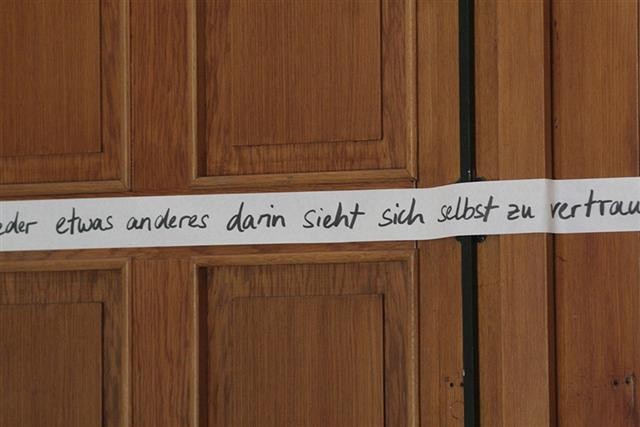 eder etwas anderes darin sieht sich selbst zu vertrau